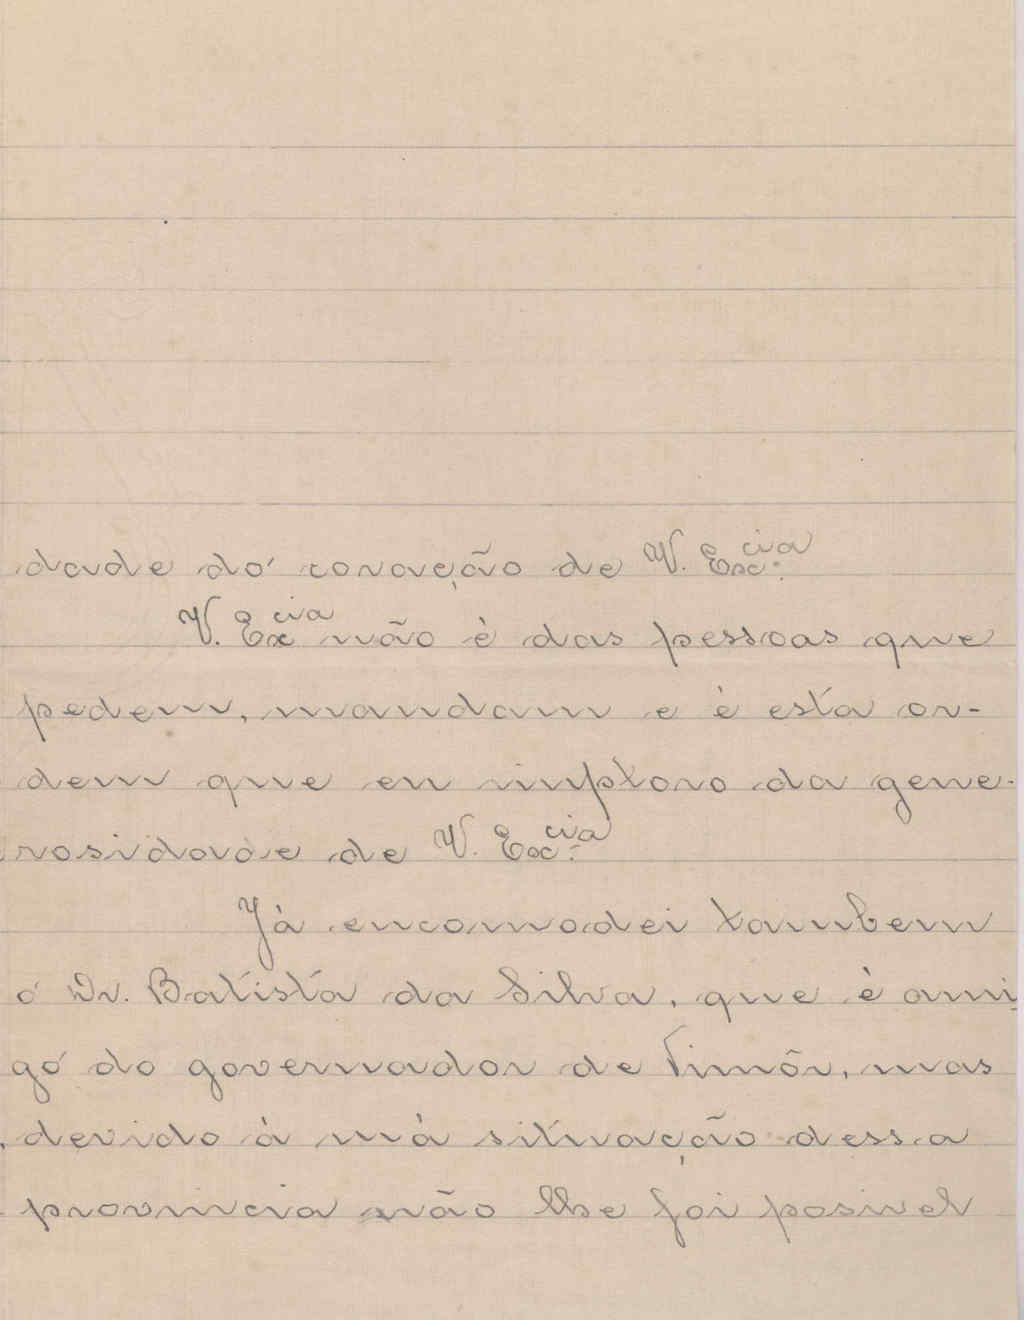 dade dó coração de V. Exc.cia
V. Excia não è das pessoas que
pedem, mandam e è esta or-
dem que eu imploro da gene-
rosidade de V. Exc.cia
Jà encomodei tambem
ó Dr. Batista da Silva, que è ami
gó do governador de Timôr, mas
devido à mà situação dessa
provincia não lhe foi posivel